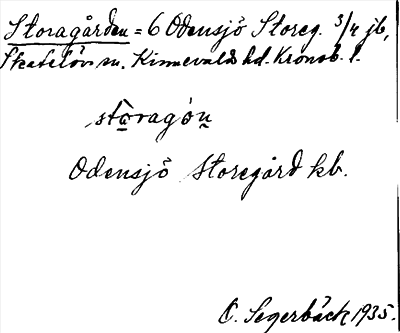 Storagården = 6 Odensjö Storeg. 3/4 jb,
Skatelövs sn. Kinnevalds hd. Kronob. l.
storagón
Odensjö Storegård kb.
C. Segerbäck 1935.